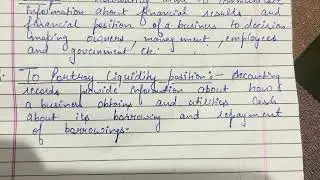 information about financial results and
financial position of a busines to decision
making owners management, employees
and government etc.
To Portray Liquidity position :- Accounting
records provide information about how
a business obtains and utilities cash
about its borrowing and repayment
of borrowings.